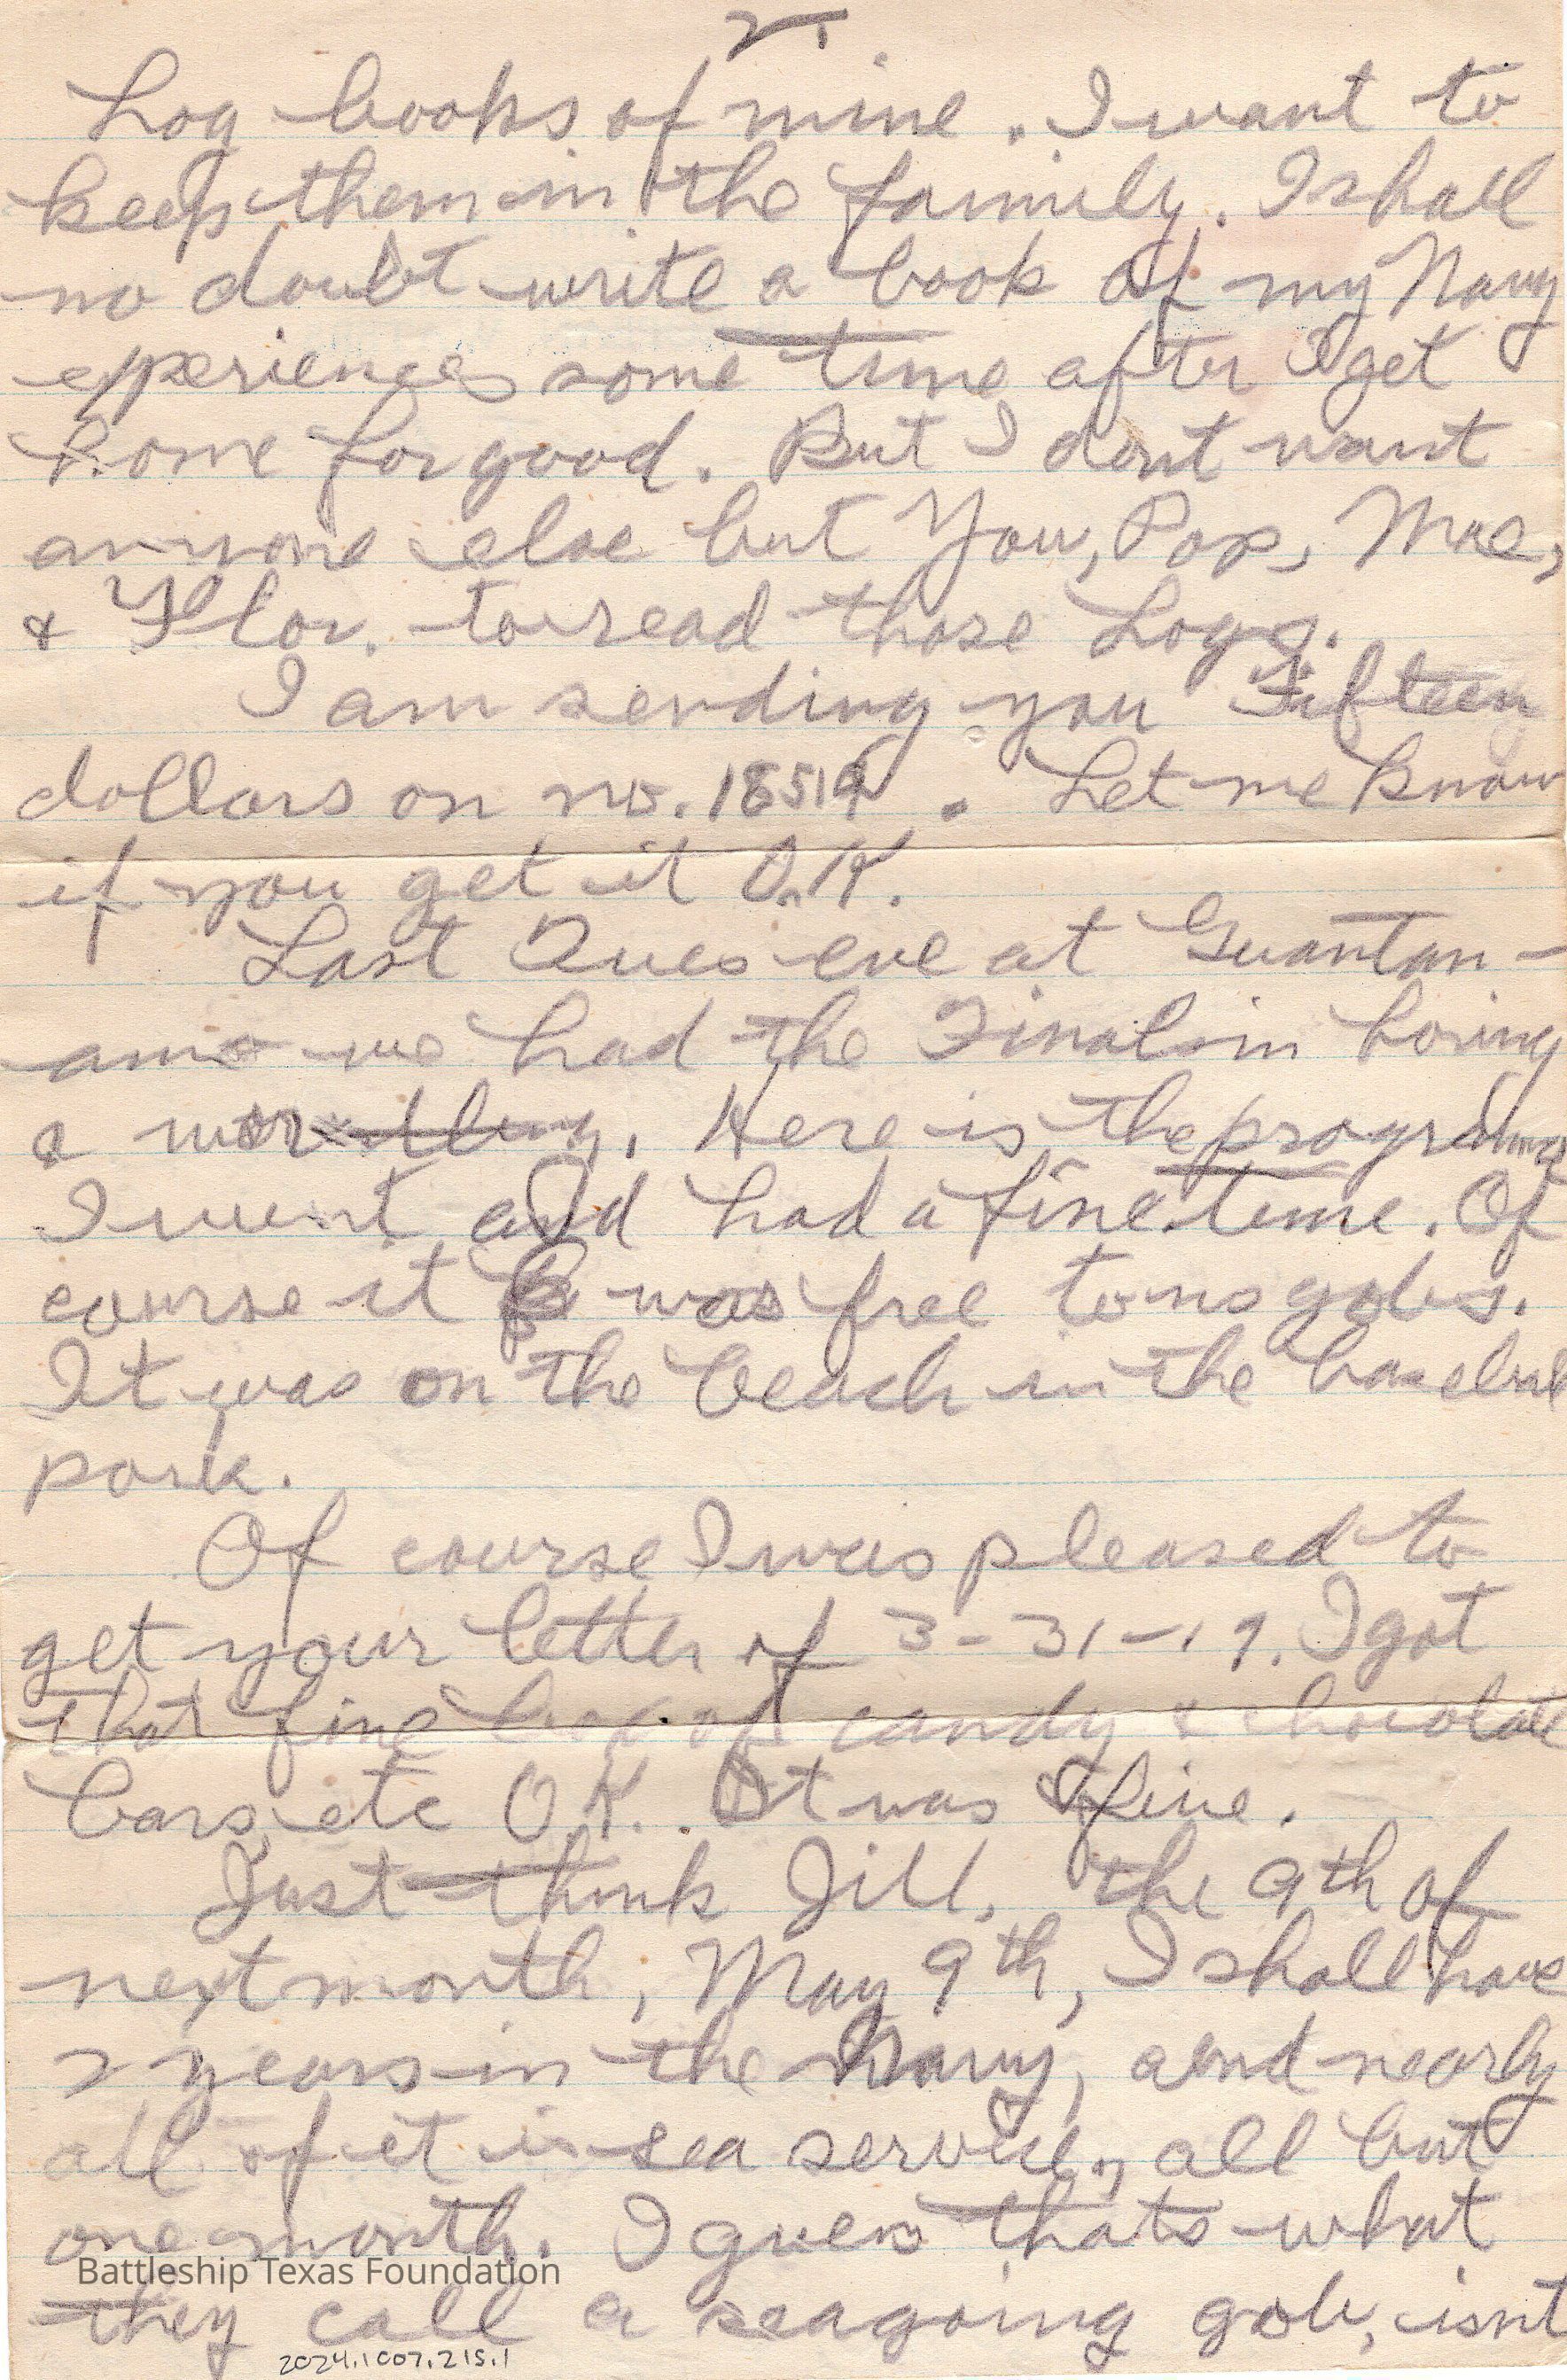 2.
Log books of mine. I want to
keep them in the faimily. I shall
no doubt write a book of my Navy
experiences some time after I get
home for good. But I dont want
anyone else but You, Pop, Mae,
& Flor. to read those Logs.
I am sending you Fifteen
dollars on no. 18519. Let me know
if you get it O.K.
Last Tues eve at Guantan-
amo we had the Finals in boxing
& Here is the programme
I went and had a fine time. Of
course it was free to us gobs.
It was on the beach in the baseball
park.
Of course I was pleased to
get your letter of 3-31-19. I got
that fine box of candy & chocolate
bars, etc O.K. It was fine.
Just think Jill, the 9th of
next month, May 9th, I shall have
2 years in the Navy, and nearly
all of it is sea service, all but
one month. I guess thats what
Battleship Texas Foundation
they call a seagoing gob, isnt
2024.1007.215.1